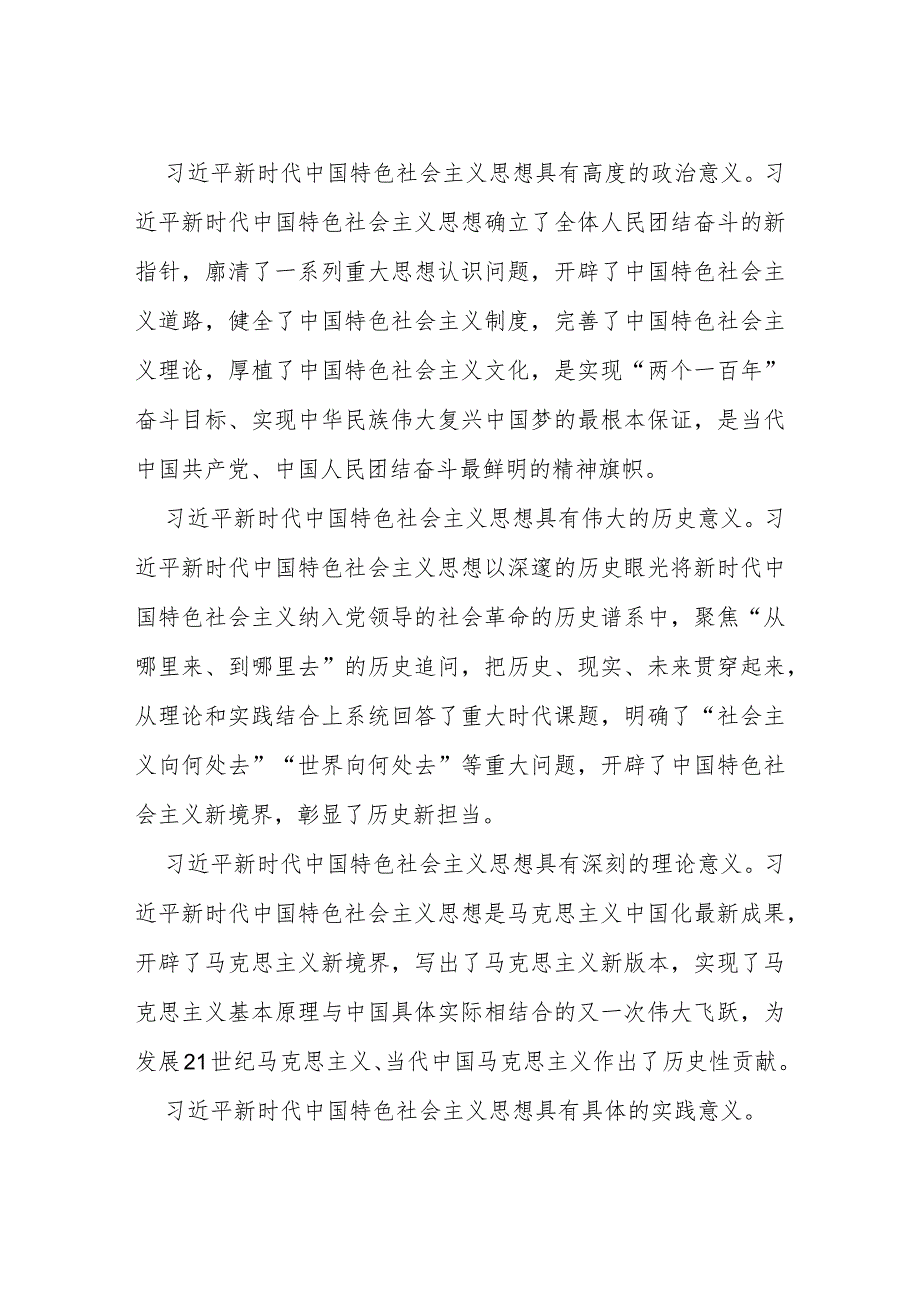 习近平新时代中国特色社会主义思想具有高度的政治意义。习
近平新时代中国特色社会主义思想确立了全体人民团结奋斗的新
指针，廓清了一系列重大思想认识问题，开辟了中国特色社会主
义道路，健全了中国特色社会主义制度，完善了中国特色社会主
义理论，厚植了中国特色社会主义文化，是实现“两个一百年”
奋斗目标、实现中华民族伟大复兴中国梦的最根本保证，是当代
中国共产党、中国人民团结奋斗最鲜明的精神旗帜。
习近平新时代中国特色社会主义思想具有伟大的历史意义。习
近平新时代中国特色社会主义思想以深邃的历史眼光将新时代中
国特色社会主义纳入党领导的社会革命的历史谱系中，聚焦“从
哪里来、到哪里去”的历史追问，把历史、现实、未来贯穿起来，
从理论和实践结合上系统回答了重大时代课题，明确了“社会主
义向何处去”“世界向何处去”等重大问题，开辟了中国特色社
会主义新境界，彰显了历史新担当。
习近平新时代中国特色社会主义思想具有深刻的理论意义。习
近平新时代中国特色社会主义思想是马克思主义中国化最新成果，
开辟了马克思主义新境界，写出了马克思主义新版本，实现了马
克思主义基本原理与中国具体实际相结合的又一次伟大飞跃，为
发展21世纪马克思主义、当代中国马克思主义作出了历史性贡献。
习近平新时代中国特色社会主义思想具有具体的实践意义。